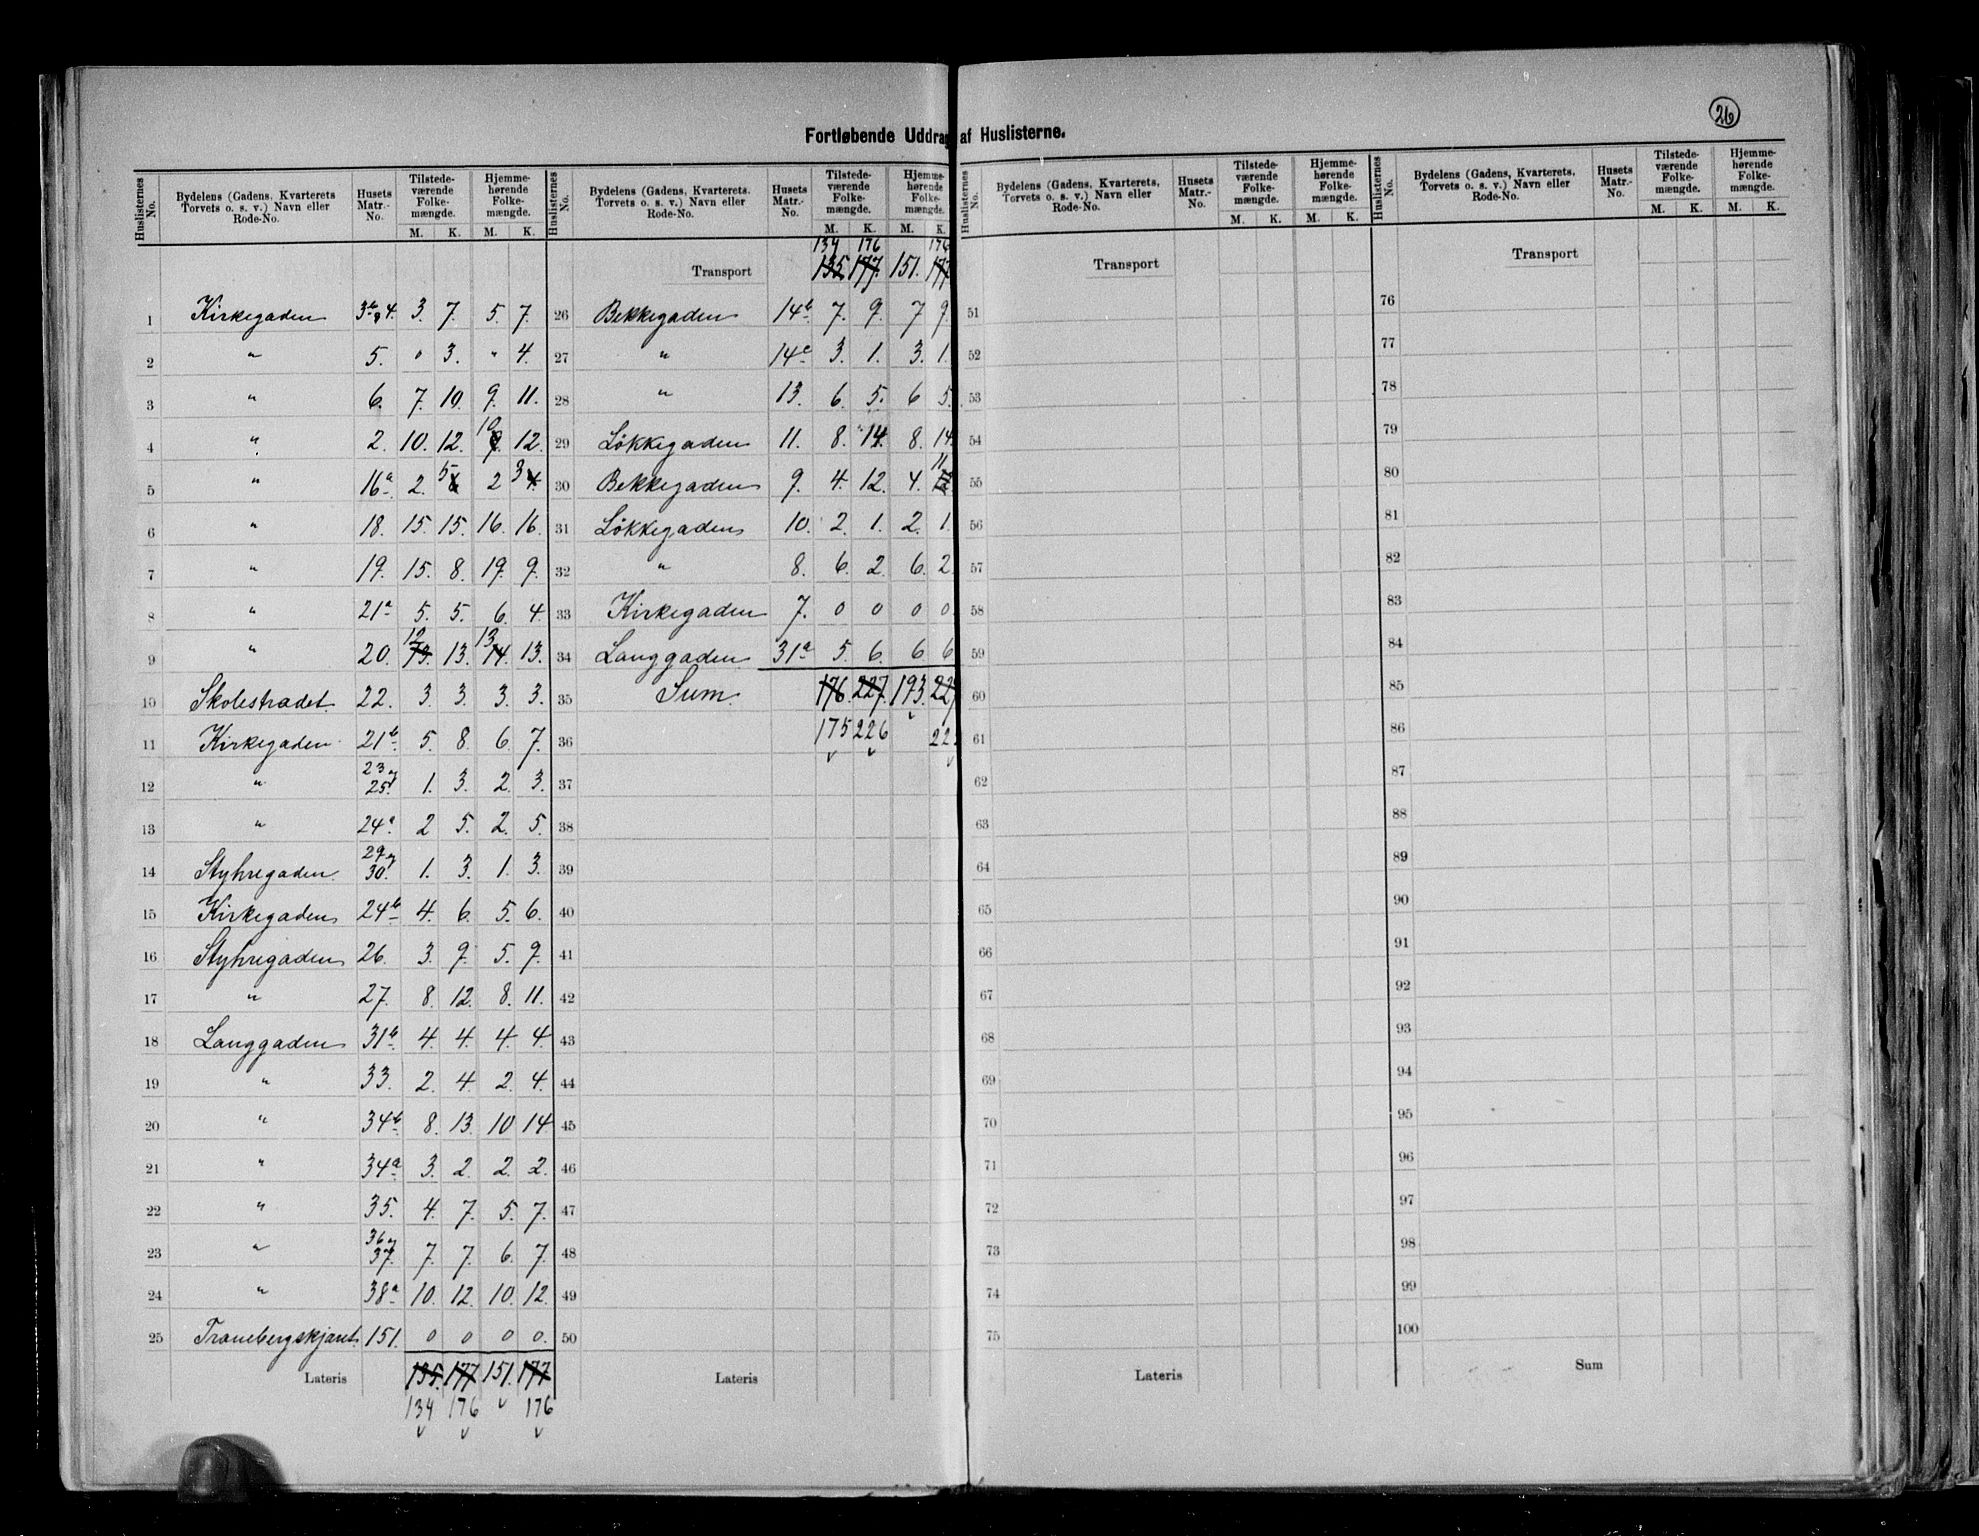 26
Fortløbende Uddrag af Huslisterne.
Huslisternes No. Bydelens (Gadens, Kvarterets Torvets o. s. v.) Navn eller Rode-No. Husets Matr.-No. Tilstedeværende Folkemængde. M. K. Hjemmehørende Folkemængde. M. K.
1 Kirkegaden 3b og 4. 3. 7. 5. 7.
2 " 5. 0 3. " 4.
3 " 6. 7. 10. 9. 11.
4 " 2. 10. 12. 10 12.
5 " 16a 2. 5 2 3
6 " 18. 15. 15. 16. 16.
7 " 19. 15. 8. 19. 9.
8 " 21a 5. 5. 6. 4.
9 " 20. 12 13. 13. 13 14. 13.
10 Skolestrædet 22. 3. 3. 3. 3.
11 Kirkegaden 21b 5. 8. 6. 7.
12 " 23 og 25. 1. 3. 2. 3.
13 " 24a 2 5. 2. 5.
14 Styhregaden 29 og 30. 1. 3. 1. 3.
15 Kirkegaden 24b 4. 6. 5. 6.
16 Styhregaden 26. 3. 9. 5. 9.
17 " 27. 8. 12. 8. 11.
18 Langgaden 31b 4. 4. 4. 4.
19 " 33. 2. 4. 2. 4.
20 " 34b 8. 13. 10 14
21 " 34a 3. 2. 2. 2.
22 " 35. 4. 7. 5. 7.
23 " 36 og 37. 7. 7. 6. 7.
24 " 38a 10. 12. 10. 12.
25 Tranebergskjæret 151. 0 0 0 0.
Lateris 135. 177 151. 177
134 176 v 176
v v v
Huslisternes No. Bydelens (Gadens, Kvarterets. Torvets o. s. v.) Navn eller Rode-No. Husets Matr.-No. Tilstedeværende Folkemængde. M. K. Hjemmehørende Folkemængde. M. K.
134 176 176
Transport 135. 177. 151. 177
26 Bekkegaden 14b 7. 9. 7 9.
27 " 14c 3. 1. 3. 1.
28 " 13. 6. 5. 6 5.
29 Løkkegaden 11. 8. 14. 8. 14.
30 Bekkegaden 9. 4. 12. 4. 11 12.
31 Løkkegaden 10. 2. 1. 2. 1.
32 " 8. 6. 2. 6. 2
33 Kirkegaden 7. 0 0 0 0.
34 Langgaden 31a 5. 6. 6. 6
35 Sum. 176. 227. 193. 227
36 175 226 v 22
v v v
37
38
39
40
41
42
43
44
45
46
47
48
49
50
Lateris
Huslisternes No. Bydelens (Gadens, Kvarterets, Torvets o. s. v.) Navn eller Rode-No. Husets Matr.-No. Tilstedeværende Folkemængde. M. K. Hjemmehørende Folkemængde. M. K.
Transport
51
52
53
54
55
56
57
58
59
60
61
62
63
64
65
66
67
68
69
70
71
72
73
74
75
Lateris
Huslisternes No. Bydelens (Gadens, Kvarterets, Torvets o. s. v.) Navn eller Rode-No. Husets Matr.-No. Tilstedeværende Folkemængde. M. K. Hjemmehørende Folkemængde. M. K.
Transport
76
77
78
79
80
81
82
83
84
85
86
87
88
89
90
91
92
93
94
95
96
97
98
99
100
Sum